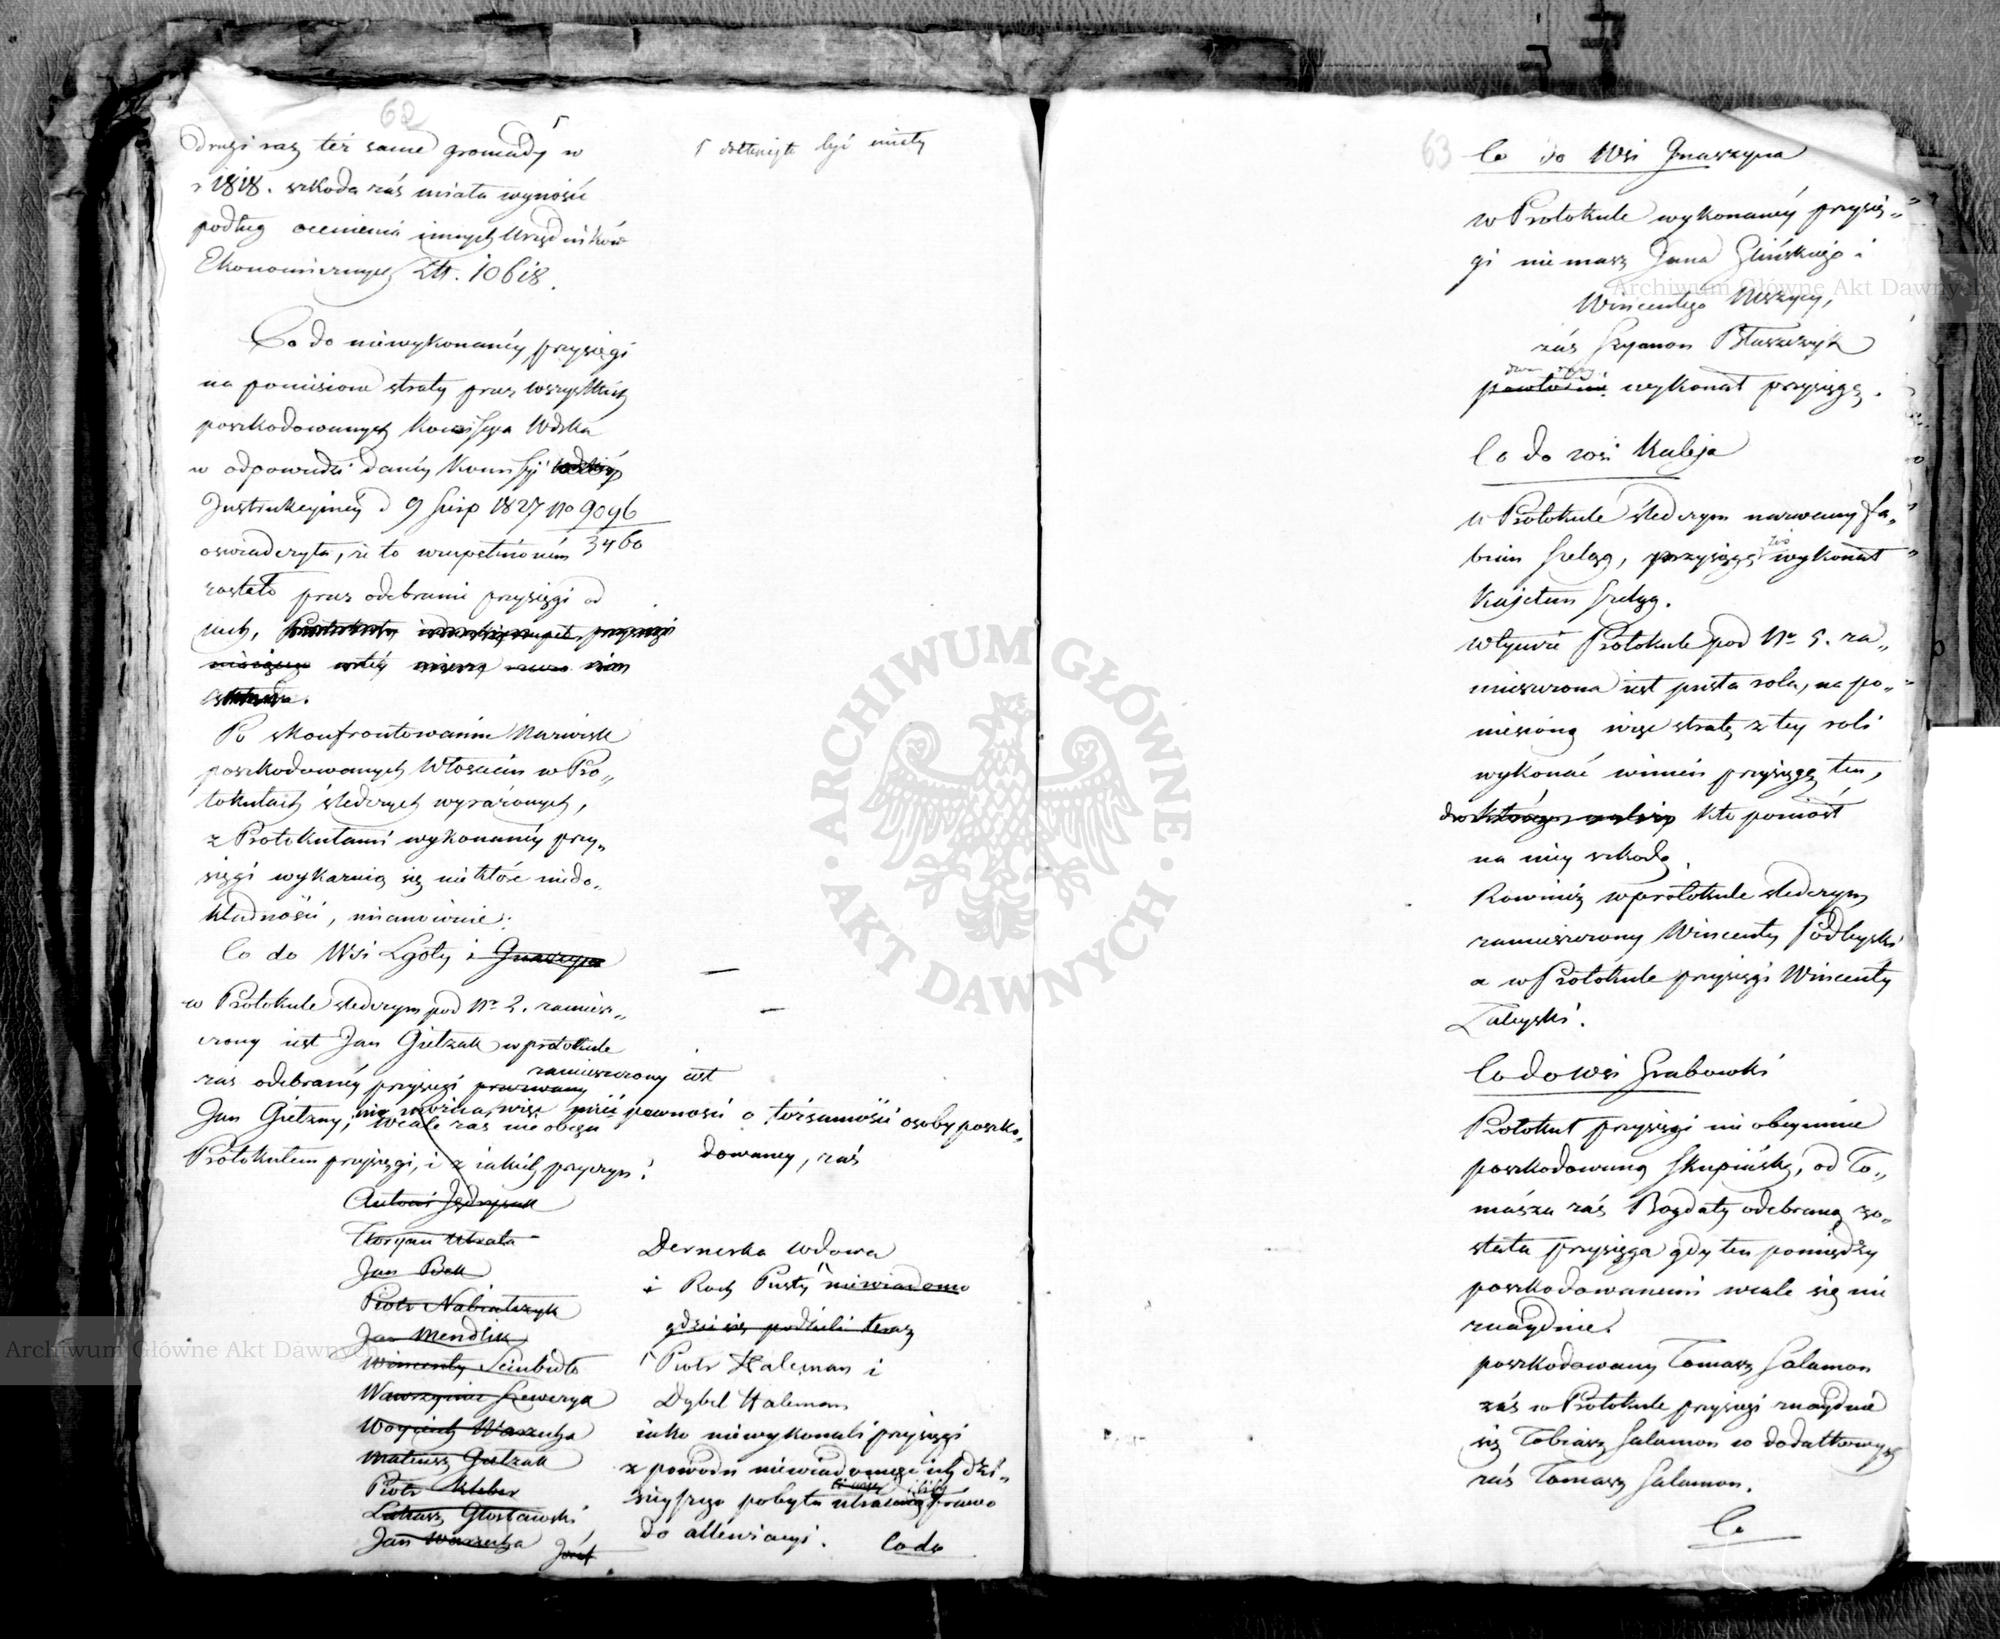 62
drugi raz też same gromady w
r 1818. szkoda zaś miała wynosić
podług ocenienia innych Urzędników
Ekonomicznych Złt. 10618.
Γ dotknięte być miały
Co do niewykonanéy przysięgi
na poniesione straty przez wszystkich
poszkodowanych Kommissya Wdzka
w odpowiedzi danéy Kommissyi
Instrukcyinéy d 9 Sierp 1827 No 9096
3460
oswiadczyła, że to uzupełnioném
zostało przez odebranie przysięgi od
nich,
Po skonfrontowaniu Nazwisk
poszkodowanych Włościan w Pro„
tokułach śledczych wyrażonych,
z Protokułami wykonanéy przy„
sięgi wykazuią się niektóre niedo„
kładności, mianowicie:
Co do Wsi Lgoty i Gnaszyna
w Protokule śledczym pod Nr 2. zamiesz„
czony iest Jan Gielzak w protokule
zaś odebranéy przysięgi zamieszczony iest
Jan Gielzny, nie można więc mieć pewności o tożsamości osoby poszko„
dowaney, zaś
wcale zaś nie obięci
Protokułem przysięgi, i z iakich przyczyn?
Antoni Jędrysiak
Floryan Utrata
Jan Bek
Piotr Nabiałczyk
Jan Mendlik
Wincenty Sciubidło
Wawrzyniec Szeweryn
Woyciech Warzecha
Mateusz Gielzak
Piotr Kleber
Łukasz Głostawski
Jan Warzecha Józef
Derneska wdowa
i Roch Pusty niewiadomo
gdzie się podzieli teraz
Γ Piotr Haleman i
Dybel Haleman
iako niewykonali przysięgi
z powodu niewiadomego ich dzi„
sieyszego pobytu utracaią prawo
do allewiacyi. Co do
63
Co do Wsi Gnaszyna
w Protokule wykonanéy przysię„
gi nie masz Jana Glińskiego i
Wincentego Mszycy,
zaś Szymon Błaszczyk
dwa razy
powtórnie wykonał przysięgę.
Co do wsi Kaleja
w Protokule śledczym nazwany Fa„
bian Szeląg, przysięgę zaś wykonał
Kajetan Szeląg.
w tymże Protokule pod Nr 5. za„
mieszczona iest pusta rola, na po„
niesioną więc stratę z tey roli
wykonać winien przysięgę ten,
kto poniósł
na niey szkodę.
Rownież w protokule śledczym
zamieszczony Wincenty Podleyski
a w Protokule przysięgi Wincenty
Zaleyski.
Co do Wsi Grabowki
Protokuł przysięgi nie obeymuie
poszkodowaną Skupińską, od To„
masza zaś Bogdały odebraną zo„
stała przysięga gdy ten pomiędzy
poszkodowanemi wcale się nie
znayduie.
poszkodowany Tomasz Salamon
zaś w Protokule przysięgi znayduie
się Tobiasz Salamon w dodatkowych
zaś Tomasz Salamon.
Co
ARCHIWUM GŁÓWNE
AKT DAWNYCH
Archiwum Główne Akt Dawnych
Archiwum Główne Akt Dawnych